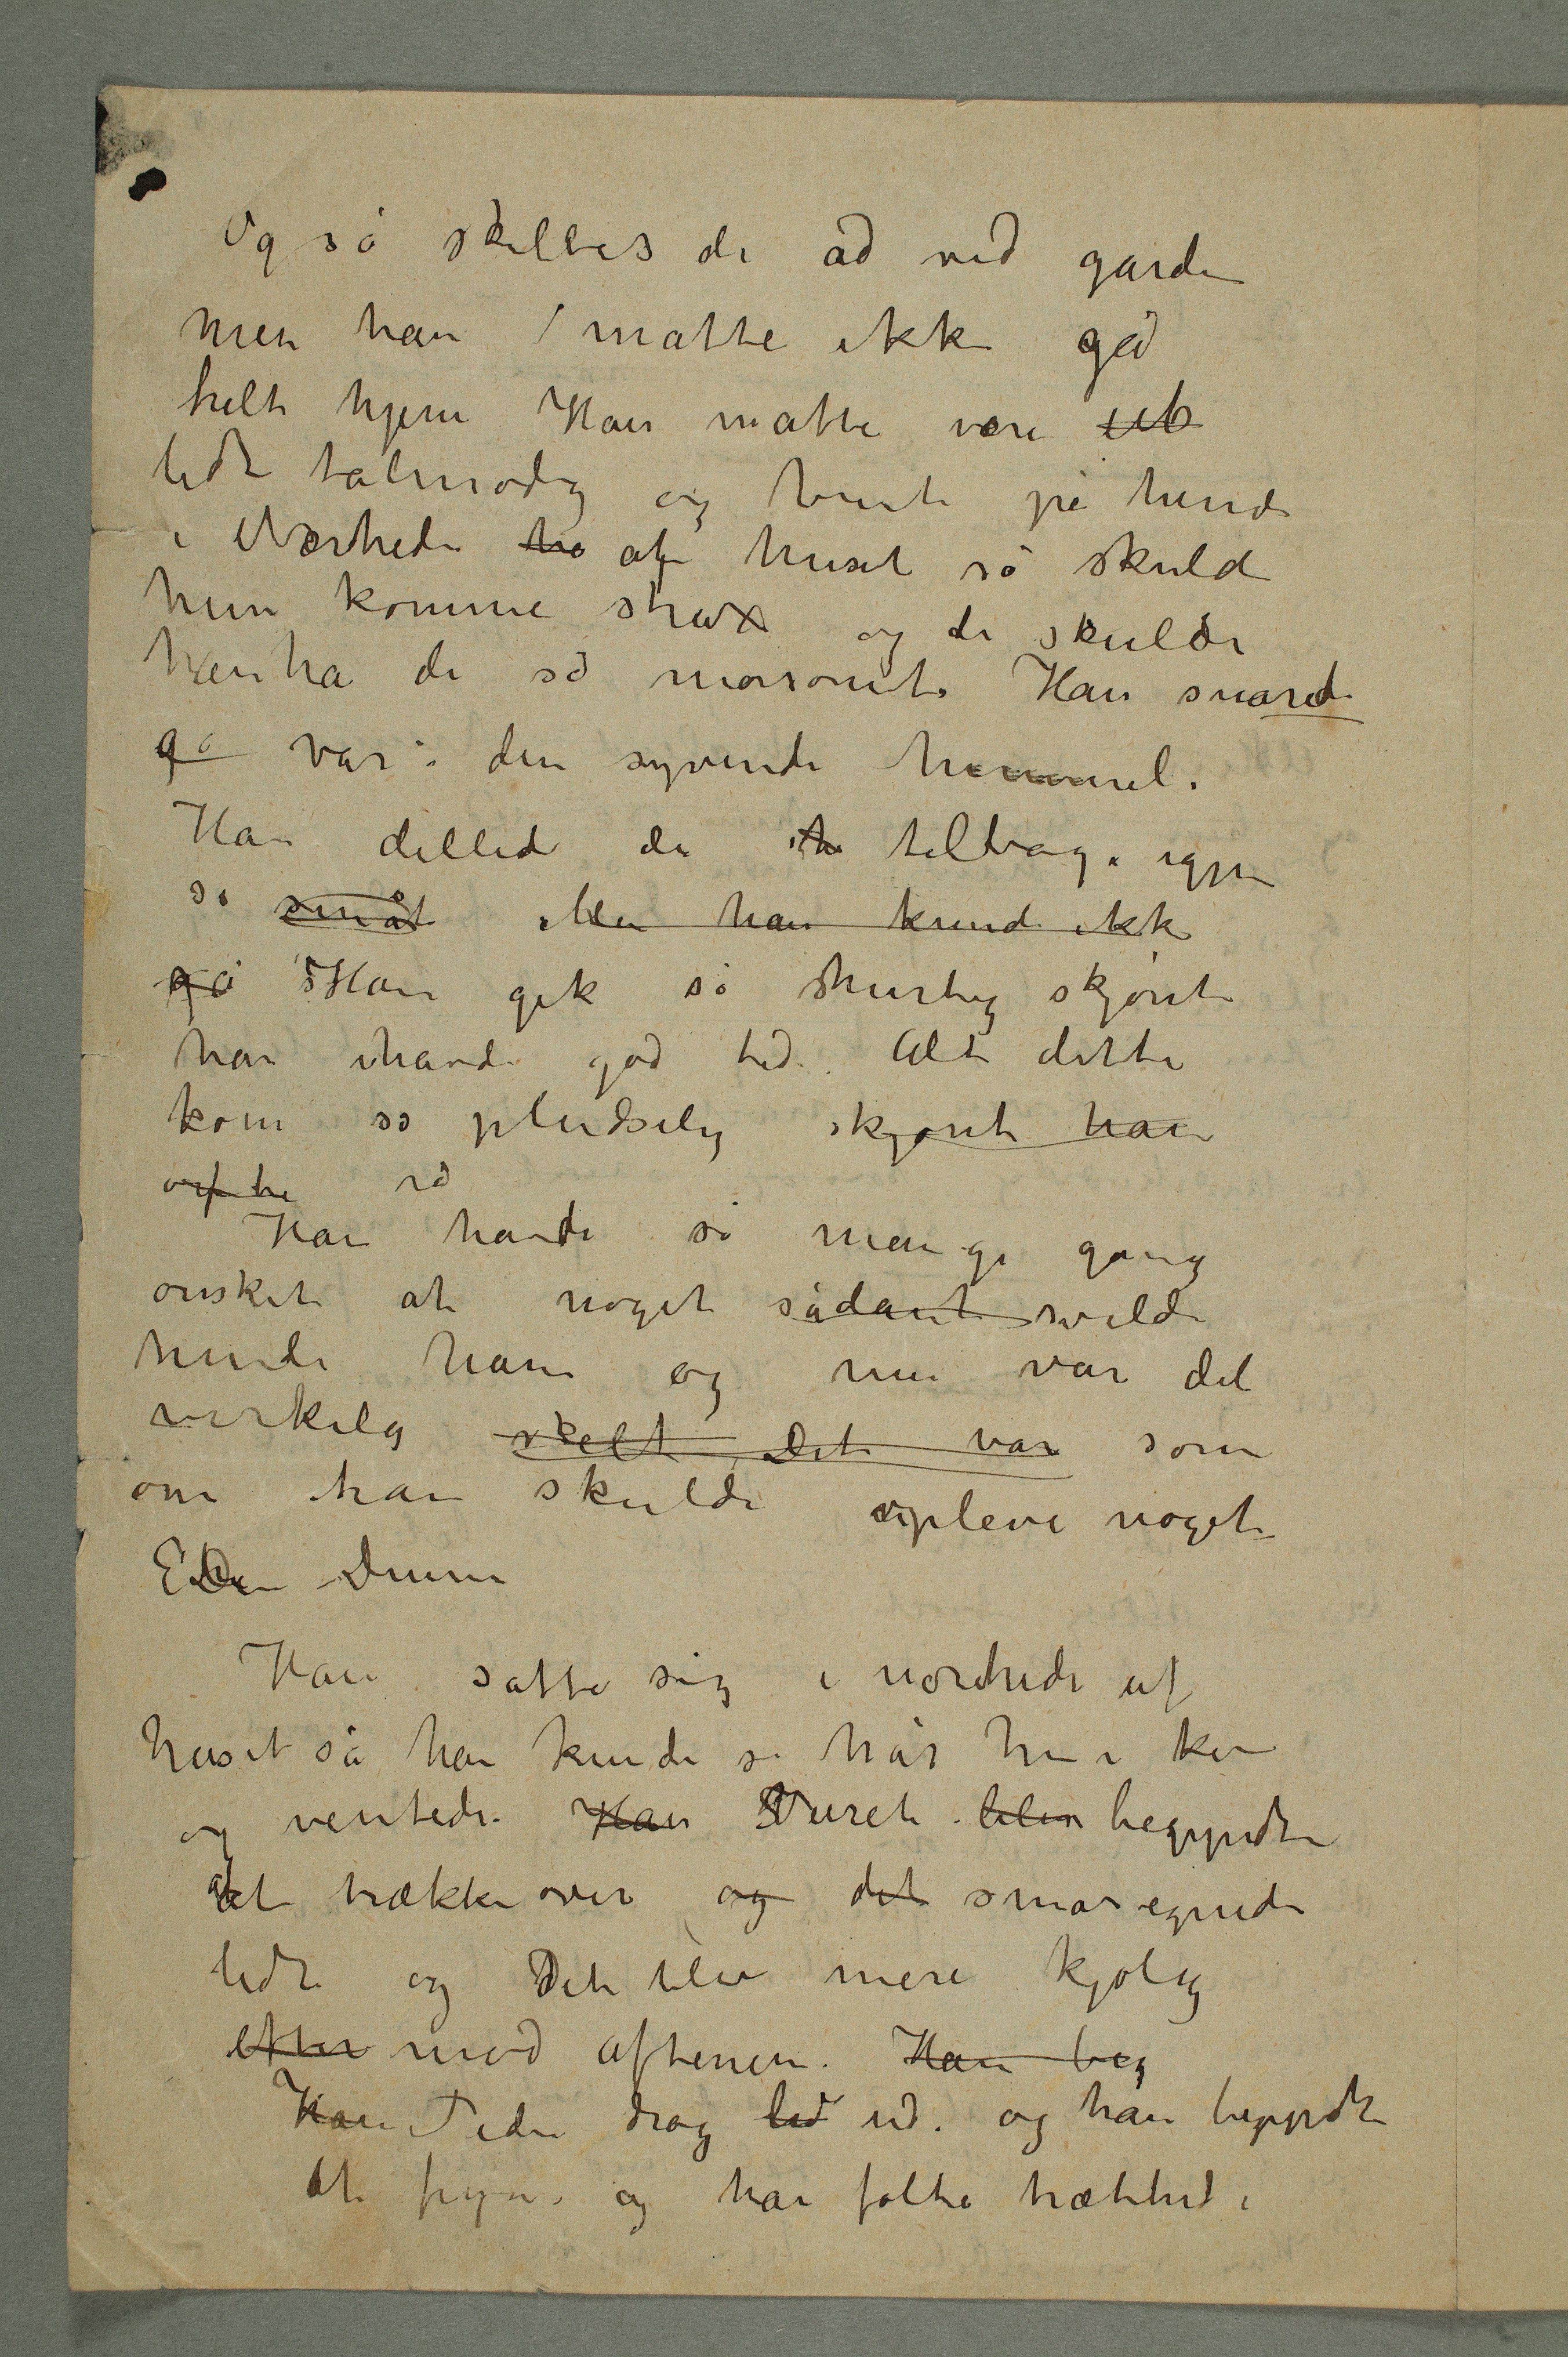 Og så skiltes de ad ved gården
men han måtte ikke gå
helt hjem Han måtte være ut
lidt tålmodig og vente på hende
i Nærheden ha af huset så skulde
hun komme strax og de skulde
ha det så morsomt. Han svarede
ja var i den syvende himmel.
Han dillede da tilbage igjen
så småt Men han kunde ikke
gå Han gik så hurtig skjønt
han havde god tid. Alt dette
kom så pludselig skjønt han
ofte så
Han havde så mange gang
ønsket at noget sådant vilde
hende ham og nu var det
virkelig skelt Det var som
om han skulde opleve noget
En Drøm
Han satte sig i nærheden af
huset så han kunde se når hun kom
og ventede. Han Veiret blev begyndte
at trække over og det småregnede
lidt og Det blev mere kjølig
efter mod aftenen. Han beg
Han Tiden drog led ud. og han begyndte
at fryse og han følte træthed i